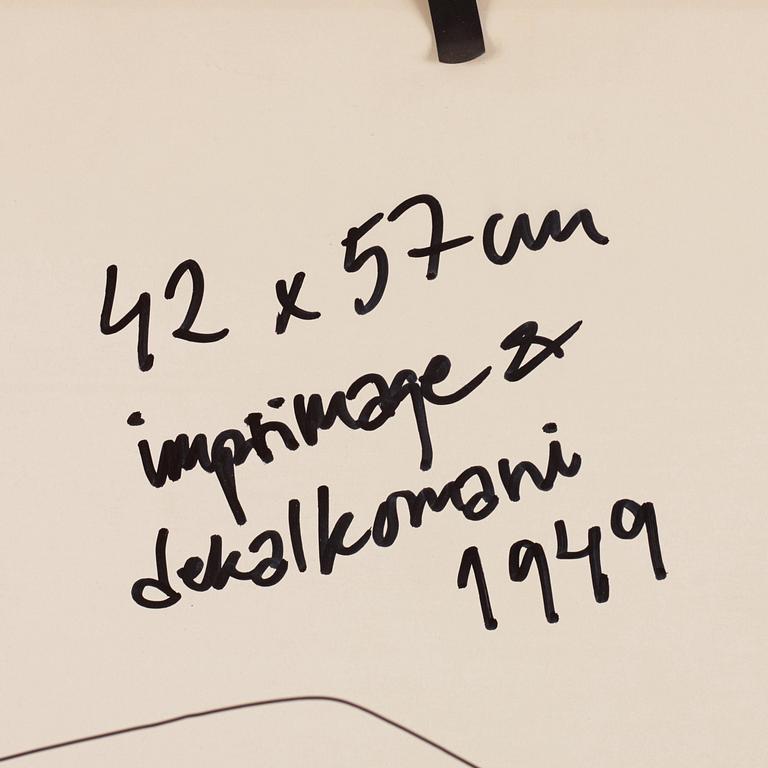 42 x 57 cm
imprimage &
dekalkomani
1949